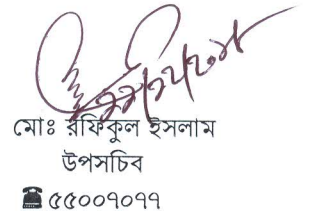 মোঃ রফিকুল ইসলাম
উপসচিব
☎ ৫৫০০৭০৭৭